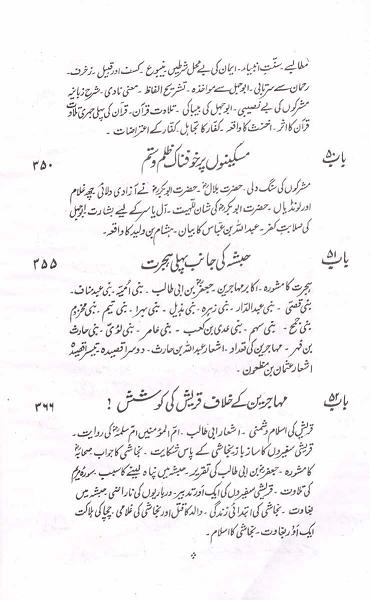 مطالبے۔ سنتِ انبیاء۔ ایمان کی بے محل شرطیں۔ ینبوع۔ کسف اور قبیل۔ زخرف۔
رحمان سے سرتابی۔ ابوجہل سے مواخذہ۔ تشریح الفاظ۔ معنی نادی۔ شرح زبانیہ
مشرکوں کی بے نصیبی۔ ابوجہل کی بیباکی۔ تلاوت قرآن۔ قرآن کی پہلی جہری تلاوت
قرآن کا اثر۔ اخنث کا واقعہ۔ کفار کا تجاہل۔ کفار کے اعتراضات۔
باب ۵۰ مسکینوں پر خوفناک ظلم و ستم ۳۵۰
مشرکوں کی سنگ دلی۔ حضرت بلالؓ۔ حضرت ابوبکرؓ نے آزادی دلائی۔ چھ غلام
اور لونڈیاں۔ حضرت ابوبکرؓ کی شانِ للہیت۔ آل یاسر کے لیے بشارت ابوجہل
کی صلابتِ کفر۔ عبداللہ بن عباس کا بیان۔ ہشام بن ولید کا واقعہ۔
باب ۵۱ حبشہ کی جانب پہلی ہجرت ۳۵۵
ہجرت کا مشورہ۔ اکابر مہاجرین۔ جعفرؓ بن ابی طالب۔ بنی امیّہ۔ بنی عبد مناف۔
بنی قصّی۔ بنی عبدالدّار۔ بنی زہرہ۔ بنی ہذیل۔ بنی بہرا۔ بنی تیم۔ بنی مخزوم
بنی جمح۔ بنی سہم۔ بنی عدی بن کعب۔ بنی عامر۔ بنی لوئی۔ بنی حارث
بن فہر۔ مہاجرین کی تعداد۔ اشعار عبداللہ بن حارث۔ دوسرا قصیدہ۔ تیسرا قصیدہ
اشعار عثمان بن مظعون۔
باب ۵۲ مہاجرین کے خلاف قریش کی کوشش! ۳۶۶
قریش کی اسلام دشمنی۔ اشعار ابی طالب۔ امّ المؤمنین امّ سلمہؓ کی روایت۔
قریشی سفیروں کا ساز باز نجاشی کے پاس شکایت۔ نجاشی کا جواب صحابہؓ
کا مشورہ۔ جعفرؓ بن ابی طالب کی تقریر۔ حبشہ میں پناہ لینے کا سبب۔ سورۂ مریم
کی تلاوت۔ قریشی سفیروں کی ایک اور تدبیر۔ درباریوں کی ناراضی حبشہ میں
بغاوت۔ نجاشی کی ابتدائی زندگی۔ والد کا قتل اور نجاشی کی غلامی۔ چچا کی ہلاکت
ایک اور بغاوت۔ نجاشی کا اسلام۔